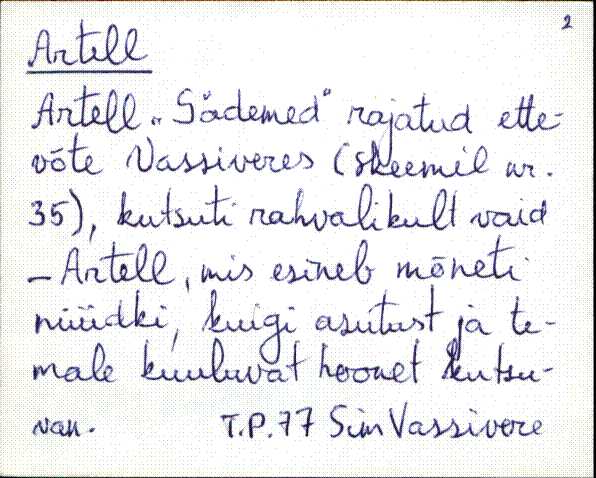 2
Artell
Artell „Sädemed" rajatud ette-
võte Vassiveres (skeemil nr.
35), kutsuti rahvalikult vaid
- Artell, mis esineb mõneti
nüüdki, kuigi asutust ja te-
male kuuluvat hoonet kutsu-
van. T.P.77 Sim Vassivere